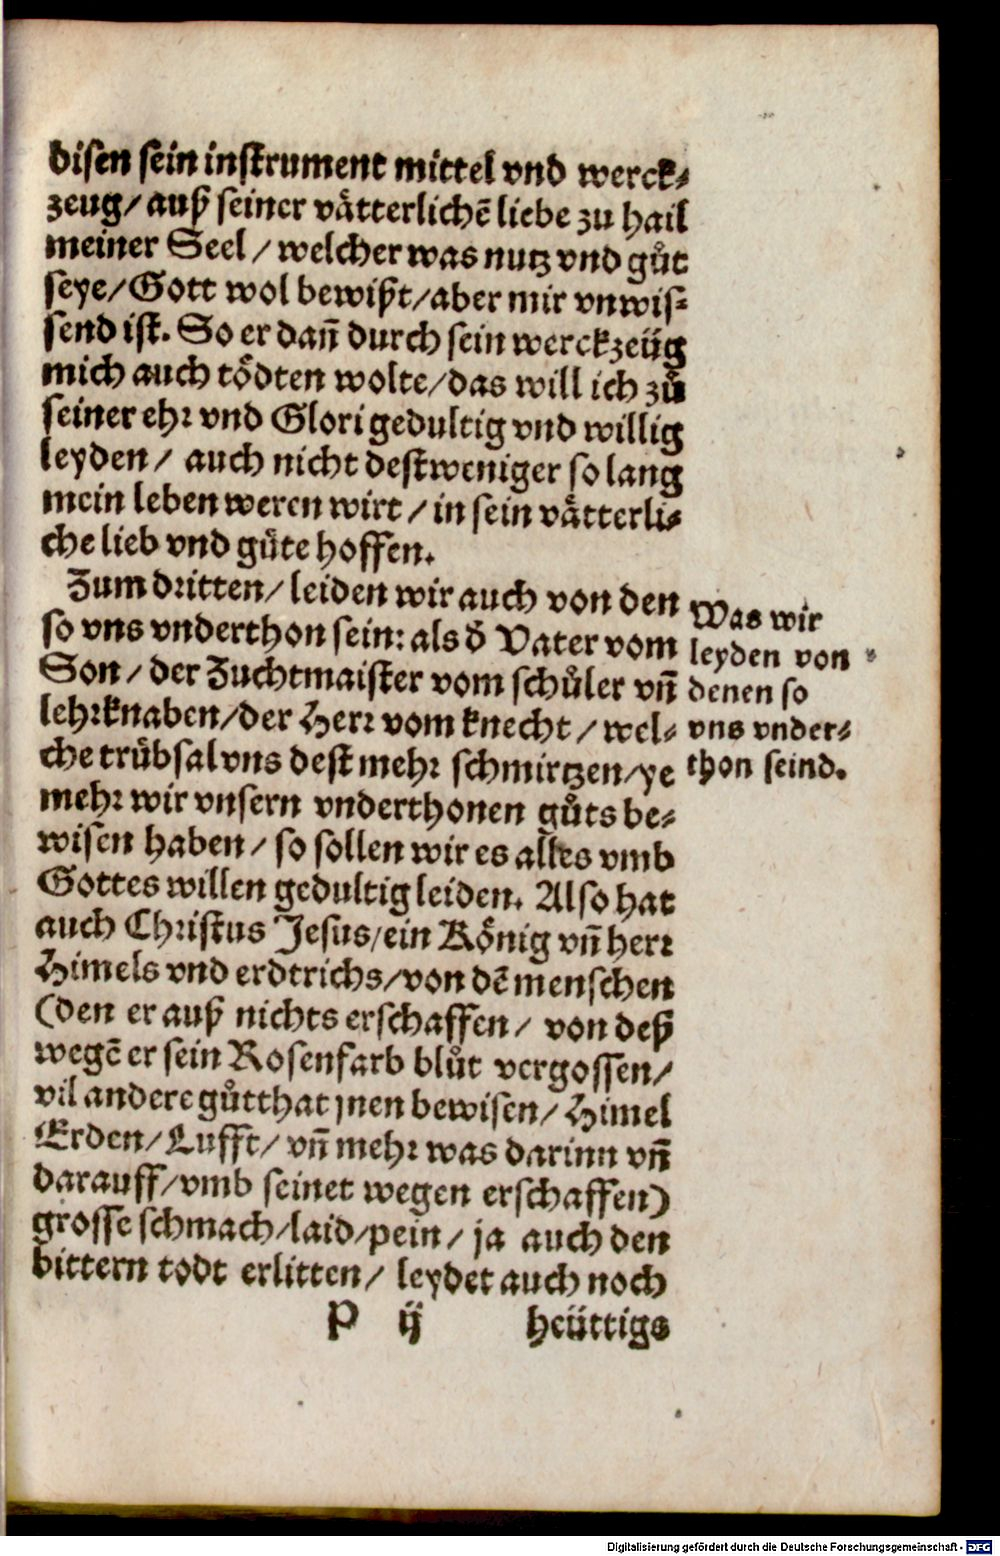 disen sein instrument mittel vnd werck-
zeug/ auß seiner våtterlichē liebe zu hail
meiner Seel / welcher was nutz vnd gůt
seye/ Gott wol bewißt/ aber mir vnwis-
send ist. So er dañ durch sein werckzeüg
mich auch tödten wolte/ das will ich zů
seiner ehr vnd Glori gedultig vnd willig
leyden/ auch nicht destweniger so lang
mein leben weren wirt / in sein våtterli-
che lieb vnd güte hoffen.
Zum dritten/ leiden wir auch von den
so vns vnderthon sein: als d̄ Vater vom
Son/ der Zuchtmaister vom schůler vñ
lehrknaben/ der Herr vom knecht / wel-
che trübsal vns dest mehr schmirtzen/ ye
mehr wir vnsern vnderthonen gůts be-
wisen haben/ so sollen wir es alles vmb
Gottes willen gedultig leiden. Also hat
auch Christus Jesus/ ein König vñ herr
Himels vnd erdtrichs/ von dē menschen
(den er auß nichts erschaffen/ von deß
wegē er sein Rosenfarb blůt vergossen/
vil andere gůtthat jnen bewisen/ Himel
Erden/ Lufft/ vñ mehr was darinn vñ
darauff/ vmb seinet wegen erschaffen)
grosse schmach/ laid/ pein/ ja auch den
bittern todt erlitten/ leydet auch noch
P ij heüttigs
Was wir
leyden von
denen so
vns vnder-
thon seind.
Digitalisierung gefördert durch die Deutsche Forschungsgemeinschaft - DFG